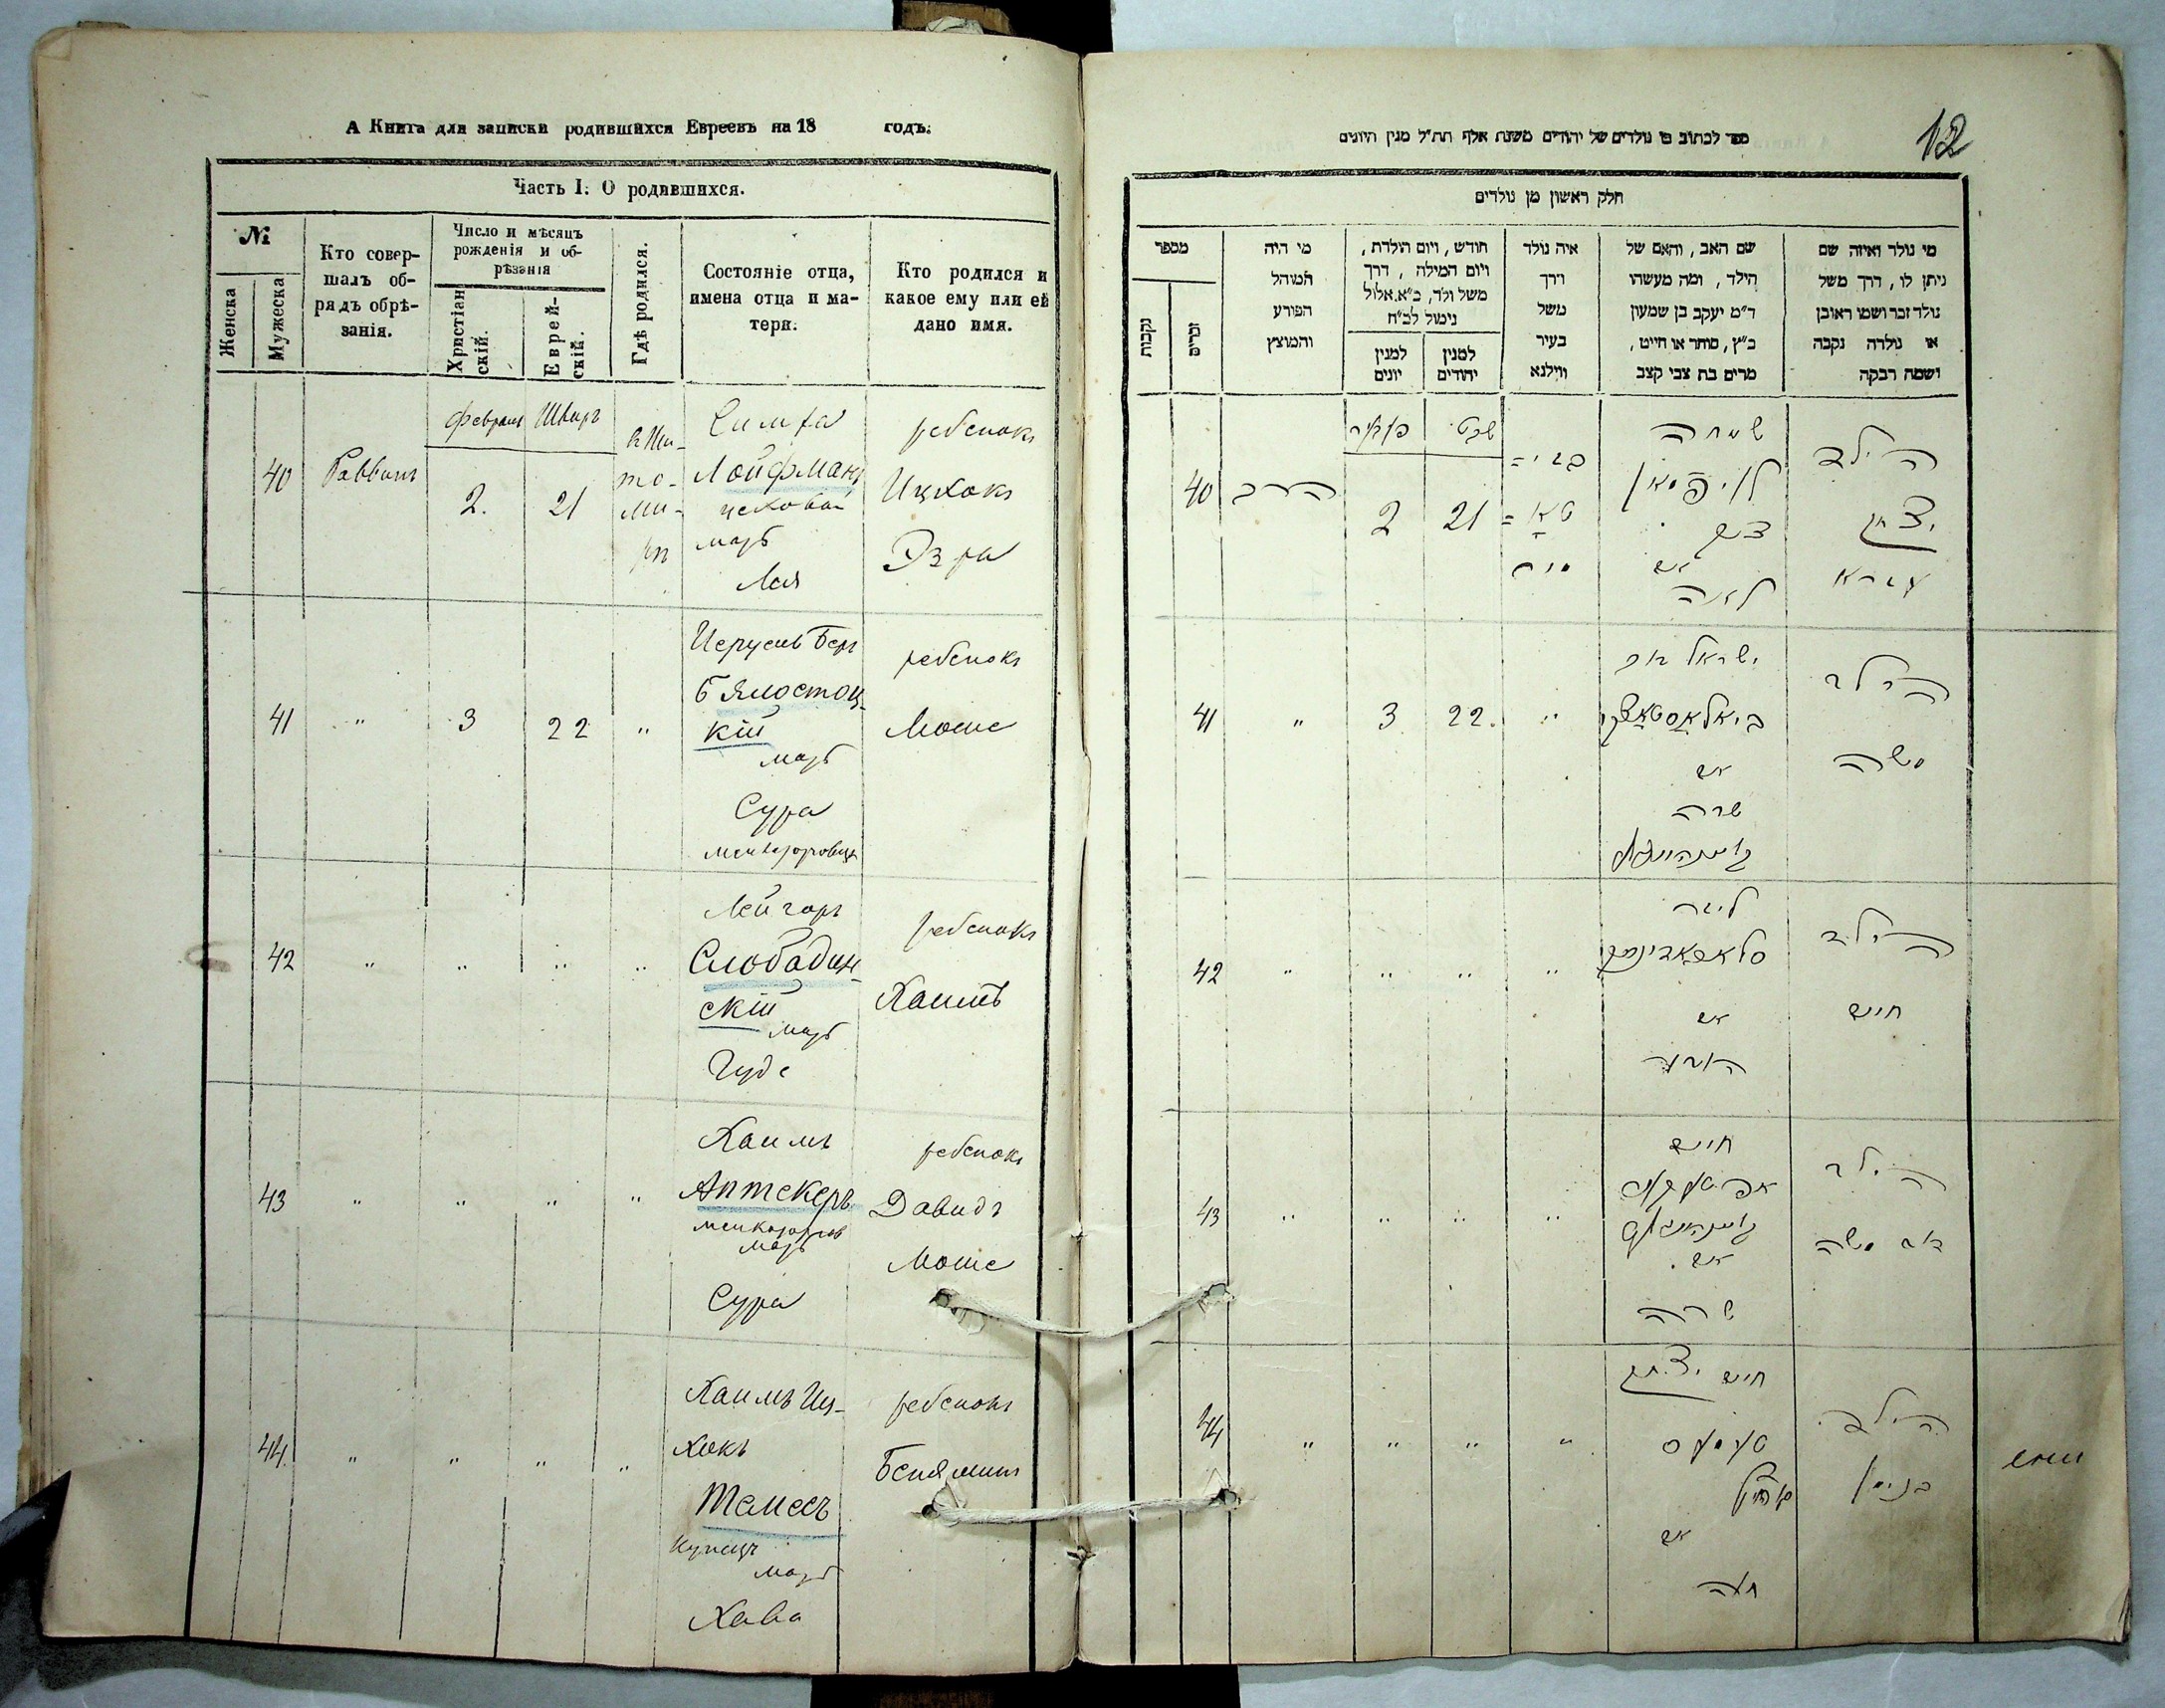 А Книга для записки родившихся Евреевъ на 18 годъ.
Часть I. О родившихся.
№
Женска
Мужеска
Кто совер-
шалъ об-
рядъ обрѣ-
занія.
Число и мѣсяцъ
рожденія и об-
рѣзанія
Христіан
скій.
Еврей-
скій.
Гдѣ родился.
Состояніе отца,
имена отца и ма-
тери.
Кто родился и
какое ему или ей
дано имя.
40
Раввинъ
Февраль
2.
Шватъ
21
въ Жи-
то-
ми-
рѣ
Симха
Лойфманъ
цеховой
мать
Лея
ребенокъ
Ицхокъ
Эзра
41
"
3
22
"
Исруель Беръ
Бялостоц-
кій
мать
Сура
ребенокъ
Моше
42
"
"
"
"
Лейзоръ
Слободин-
скій
мать
Гуде
ребенокъ
Хаимъ
43
"
"
"
"
Хаимъ
Аптекеръ
мать
Сура
ребенокъ
Давидъ
Моше
44
"
"
"
"
Хаимъ Иц-
хокъ
Темесъ
купецъ
мать
Хава
ребенокъ
Беняминъ
12
ספר לכתוב בו נולדים של יהודים משנת אלף תת״ל מנין היונים
חלק ראשון מן נולדים
מספר
נקבות
זכרים
מי היה
המוהל
הפורע
והמוצץ
חודש, ויום הולדת,
ויום המילה, דרך
משל ולד, כ״א אלול
נימול לכ״ח
למנין
יונים
למנין
יהודים
איה נולד
דרך
משל
בעיר
ווילנא
שם האב, והאם של
הילד, ומה מעשהו
ד״מ יעקב בן שמעון
כ״ץ, סוחר או חייט,
מרים בת צבי קצב
מי נולד ואיזה שם
ניתן לו, דרך משל
נולד זכר ושמו ראובן
או נולדה נקבה
ושמה רבקה
40
הרב
2
שבט
21
שמחה
אם
לאה
הילד
יצחק
עזרא
41
"
3
22.
"
ישראל בער
ביאלאסטאצקי
אם
שרה
הילד
משה
42
"
"
"
"
אם
הילד
חיים
43
"
"
"
"
חיים
אם
שרה
הילד
דוד משה
44
"
"
"
"
חיים יצחק
טעמעס
אם
חוה
הילד
בנימין